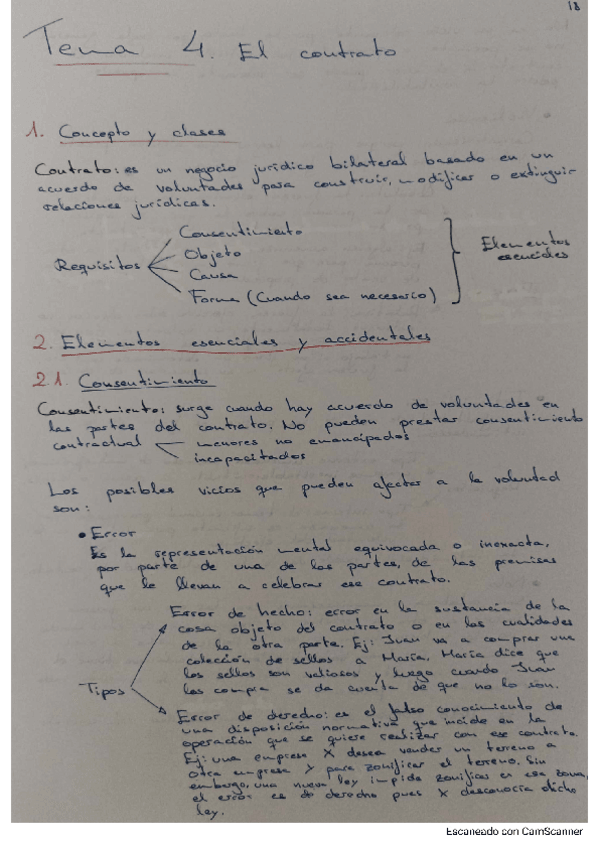 18
Tema 4. El contrato
1. Concepto y clases
Contrato: es un negocio jurídico bilateral basado en un
acuerdo de voluntades para construir, modificar o extinguir
relaciones jurídicas.
Requisitos
Consentimiento
Objeto
Causa
Forma (Cuando sea necesario)
Elementos
esenciales
2. Elementos esenciales y accidentales
2.1. Consentimiento
Consentimiento: surge cuando hay acuerdo de voluntades en
las partes del contrato. No pueden prestar consentimiento
contractual
menores no emancipados
incapacitados
Los posibles vicios que pueden afectar a la voluntad
son:
• Error
Es la representación mental equivocada o inexacta,
por parte de una de las partes, de las premisas
que le llevan a celebrar ese contrato.
Tipos
Error de hecho: error en la sustancia de la
cosa objeto del contrato o en las cualidades
de la otra parte. Ej: Juan va a comprar una
colección de sellos a María. María dice que
los sellos son valiosos y luego cuando Juan
las compra se da cuenta de que no lo son.
Error de derecho: es el falso conocimiento de
una disposición normativa que incide en la
operación que se quiere realizar con ese contrato.
Ej: una empresa X desea vender un terreno a
otra empresa y para zonificar el terreno. Sin
embargo, una nueva ley impide zonificar en esa zona,
el error es de derecho pues X desconocía dicho
ley.
Escaneado con CamScanner